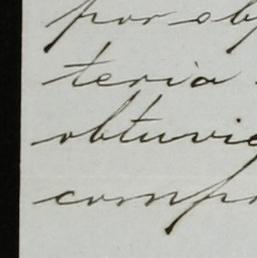 por ob
teria
obtuvie
comp